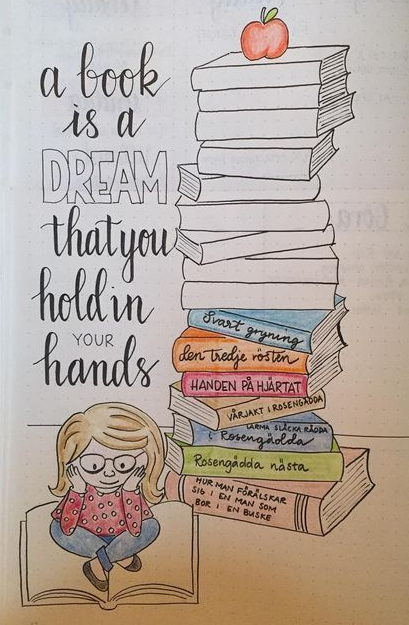 a book
is a
DREAM
that you
hold in
YOUR
hands
Svart gryning
den tredje rösten
HANDEN PÅ HJÄRTAT
VÅRJAKT I ROSENGÄDDA
LARMA SLÄCKA RÄDDA
i Rosengädda
Rosengädda nästa
HUR MAN FÖRÄLSKAR
SIG I EN MAN SOM
BOR I EN BUSKE